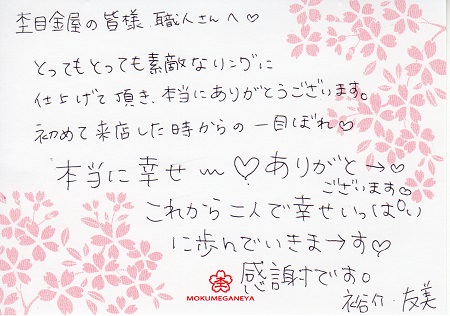 杢目金屋の皆様、職人さんへ♡
とってもとっても素敵なリングに
仕上げて頂き、本当にありがとうございます。
初めて来店した時からの一目ぼれ♡
本当に幸せ〜♡ありがと→♡
ございます♡
これから二人で幸せいっぱい
に歩んでいきま→す♡
感謝です。
MOKUMEGANEYA
裕介・友美